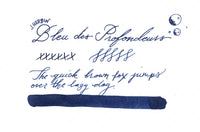 J. HERBIN
Bleu des Profondeurs
xxxxxx SSSSS
The quick brown fox jumps
over the lazy dog.